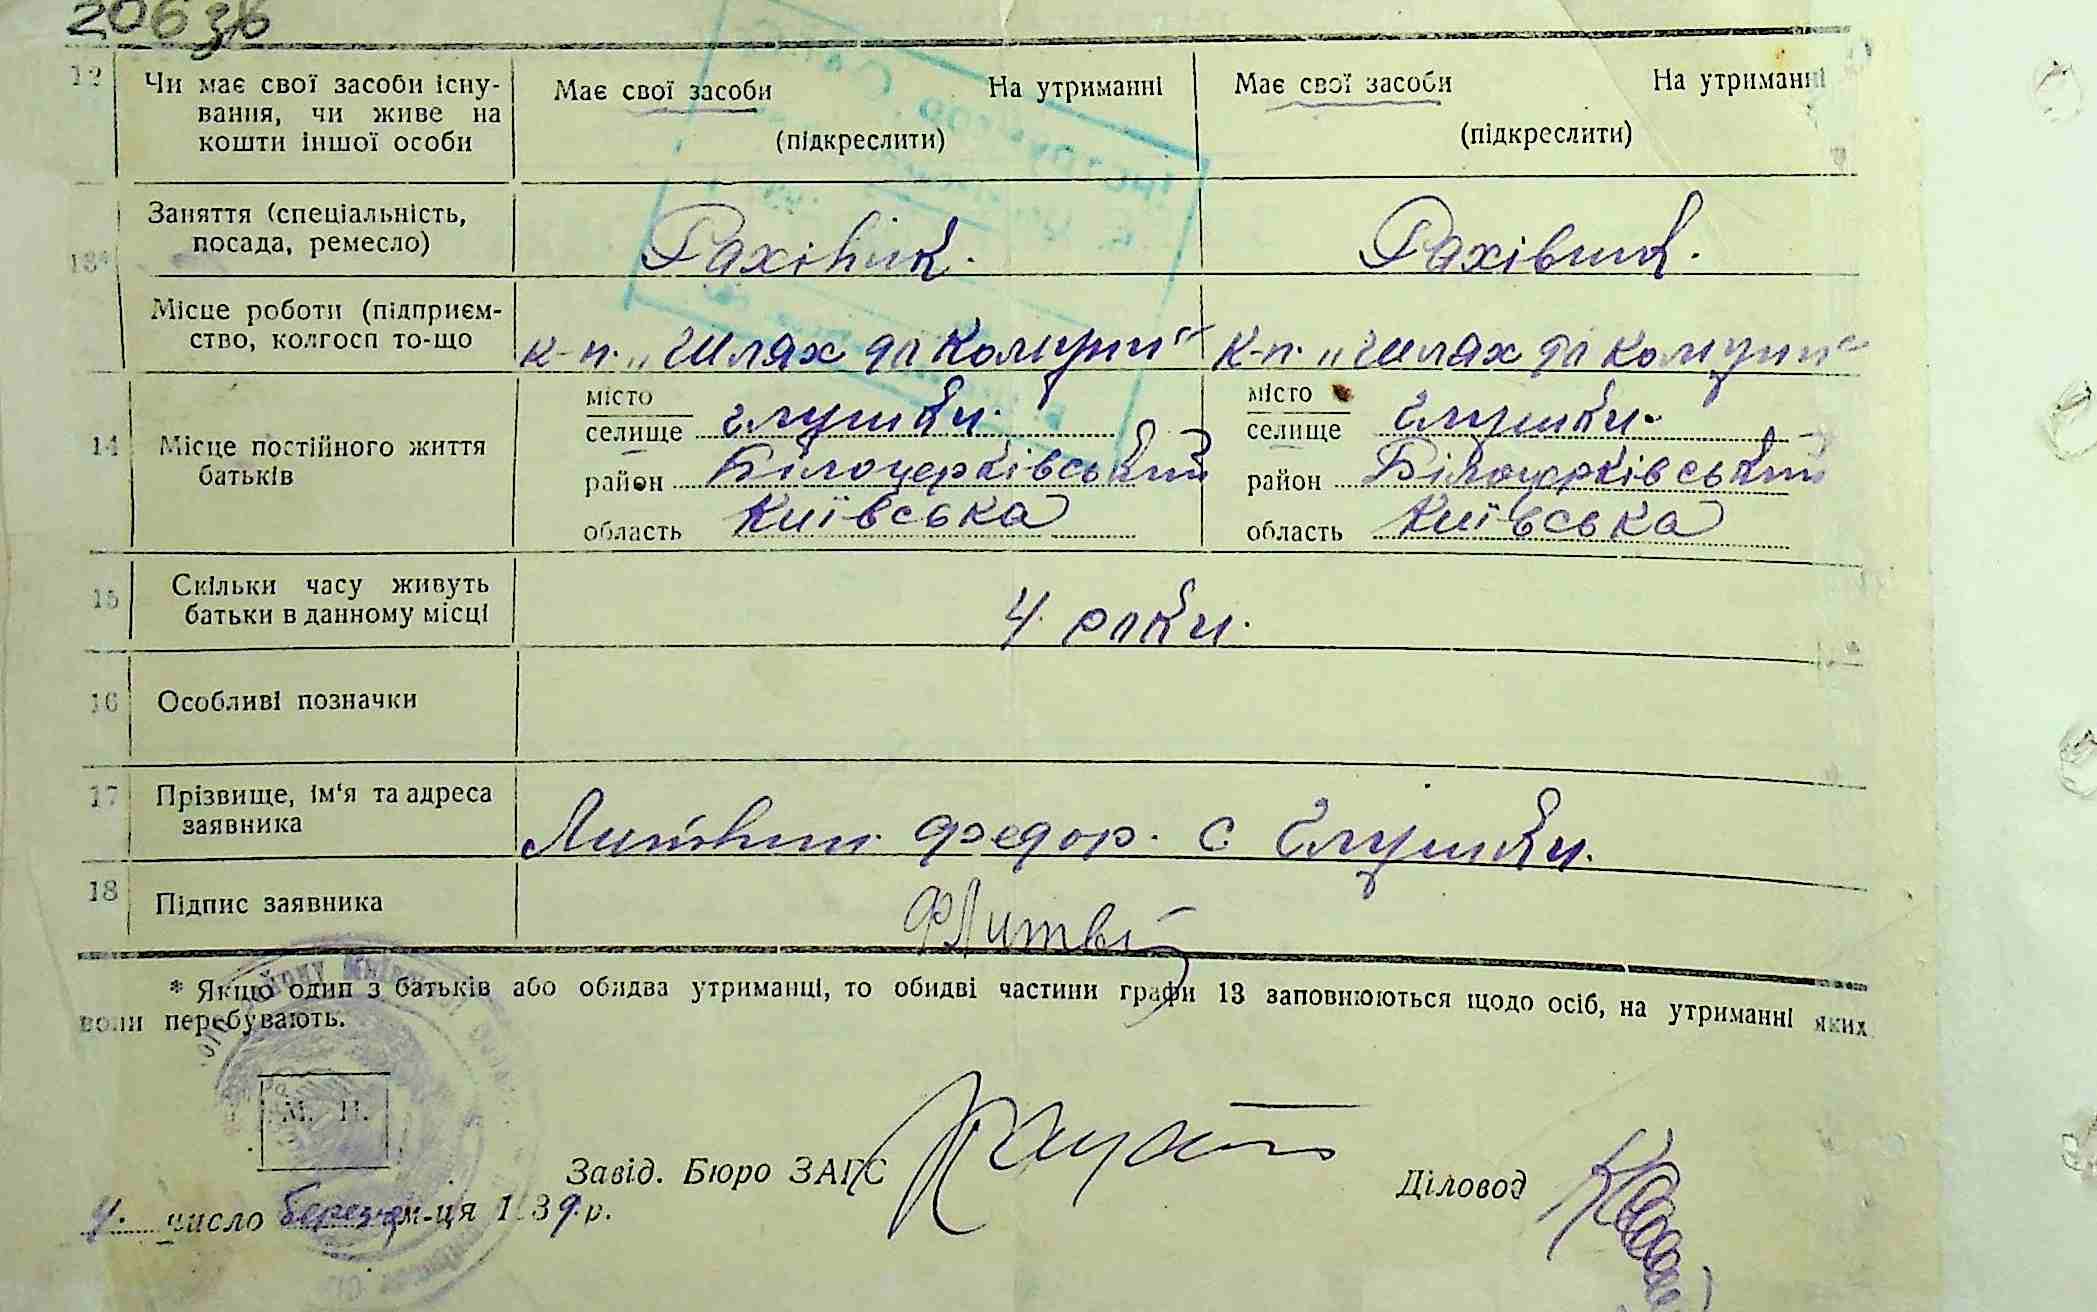 206 зв
12 Чи має свої засоби існу- Має свої засоби На утриманні Має свої засоби На утриманні
вання, чи живе на
кошти іншої особи (підкреслити) (підкреслити)
13* Заняття (спеціальність,
посада, ремесло) Рахівник. Рахівник.
Місце роботи (підприєм-
ство, колгосп то-що к-п. „Шлях до Комуни“ к-п. „Шлях до Комуни“
14 Місце постійного життя
батьків
місто місто
селище Глушки. селище Глушки.
район Білоцерківський район Білоцерківський
область Київська область Київська
15 Скільки часу живуть
батьки в данному місці 4. роки.
16 Особливі позначки
17 Прізвище, ім'я та адреса
заявника Литвин. Федор. С Глушки.
18 Підпис заявника ФЛитві
* Якщо один з батьків або обидва утриманці, то обидві частини графи 13 заповнюються щодо осіб, на утриманні яких
вони перебувають.
М. П.
Завід. Бюро ЗАГС Діловод
4. число березня м-ця 1939.р.